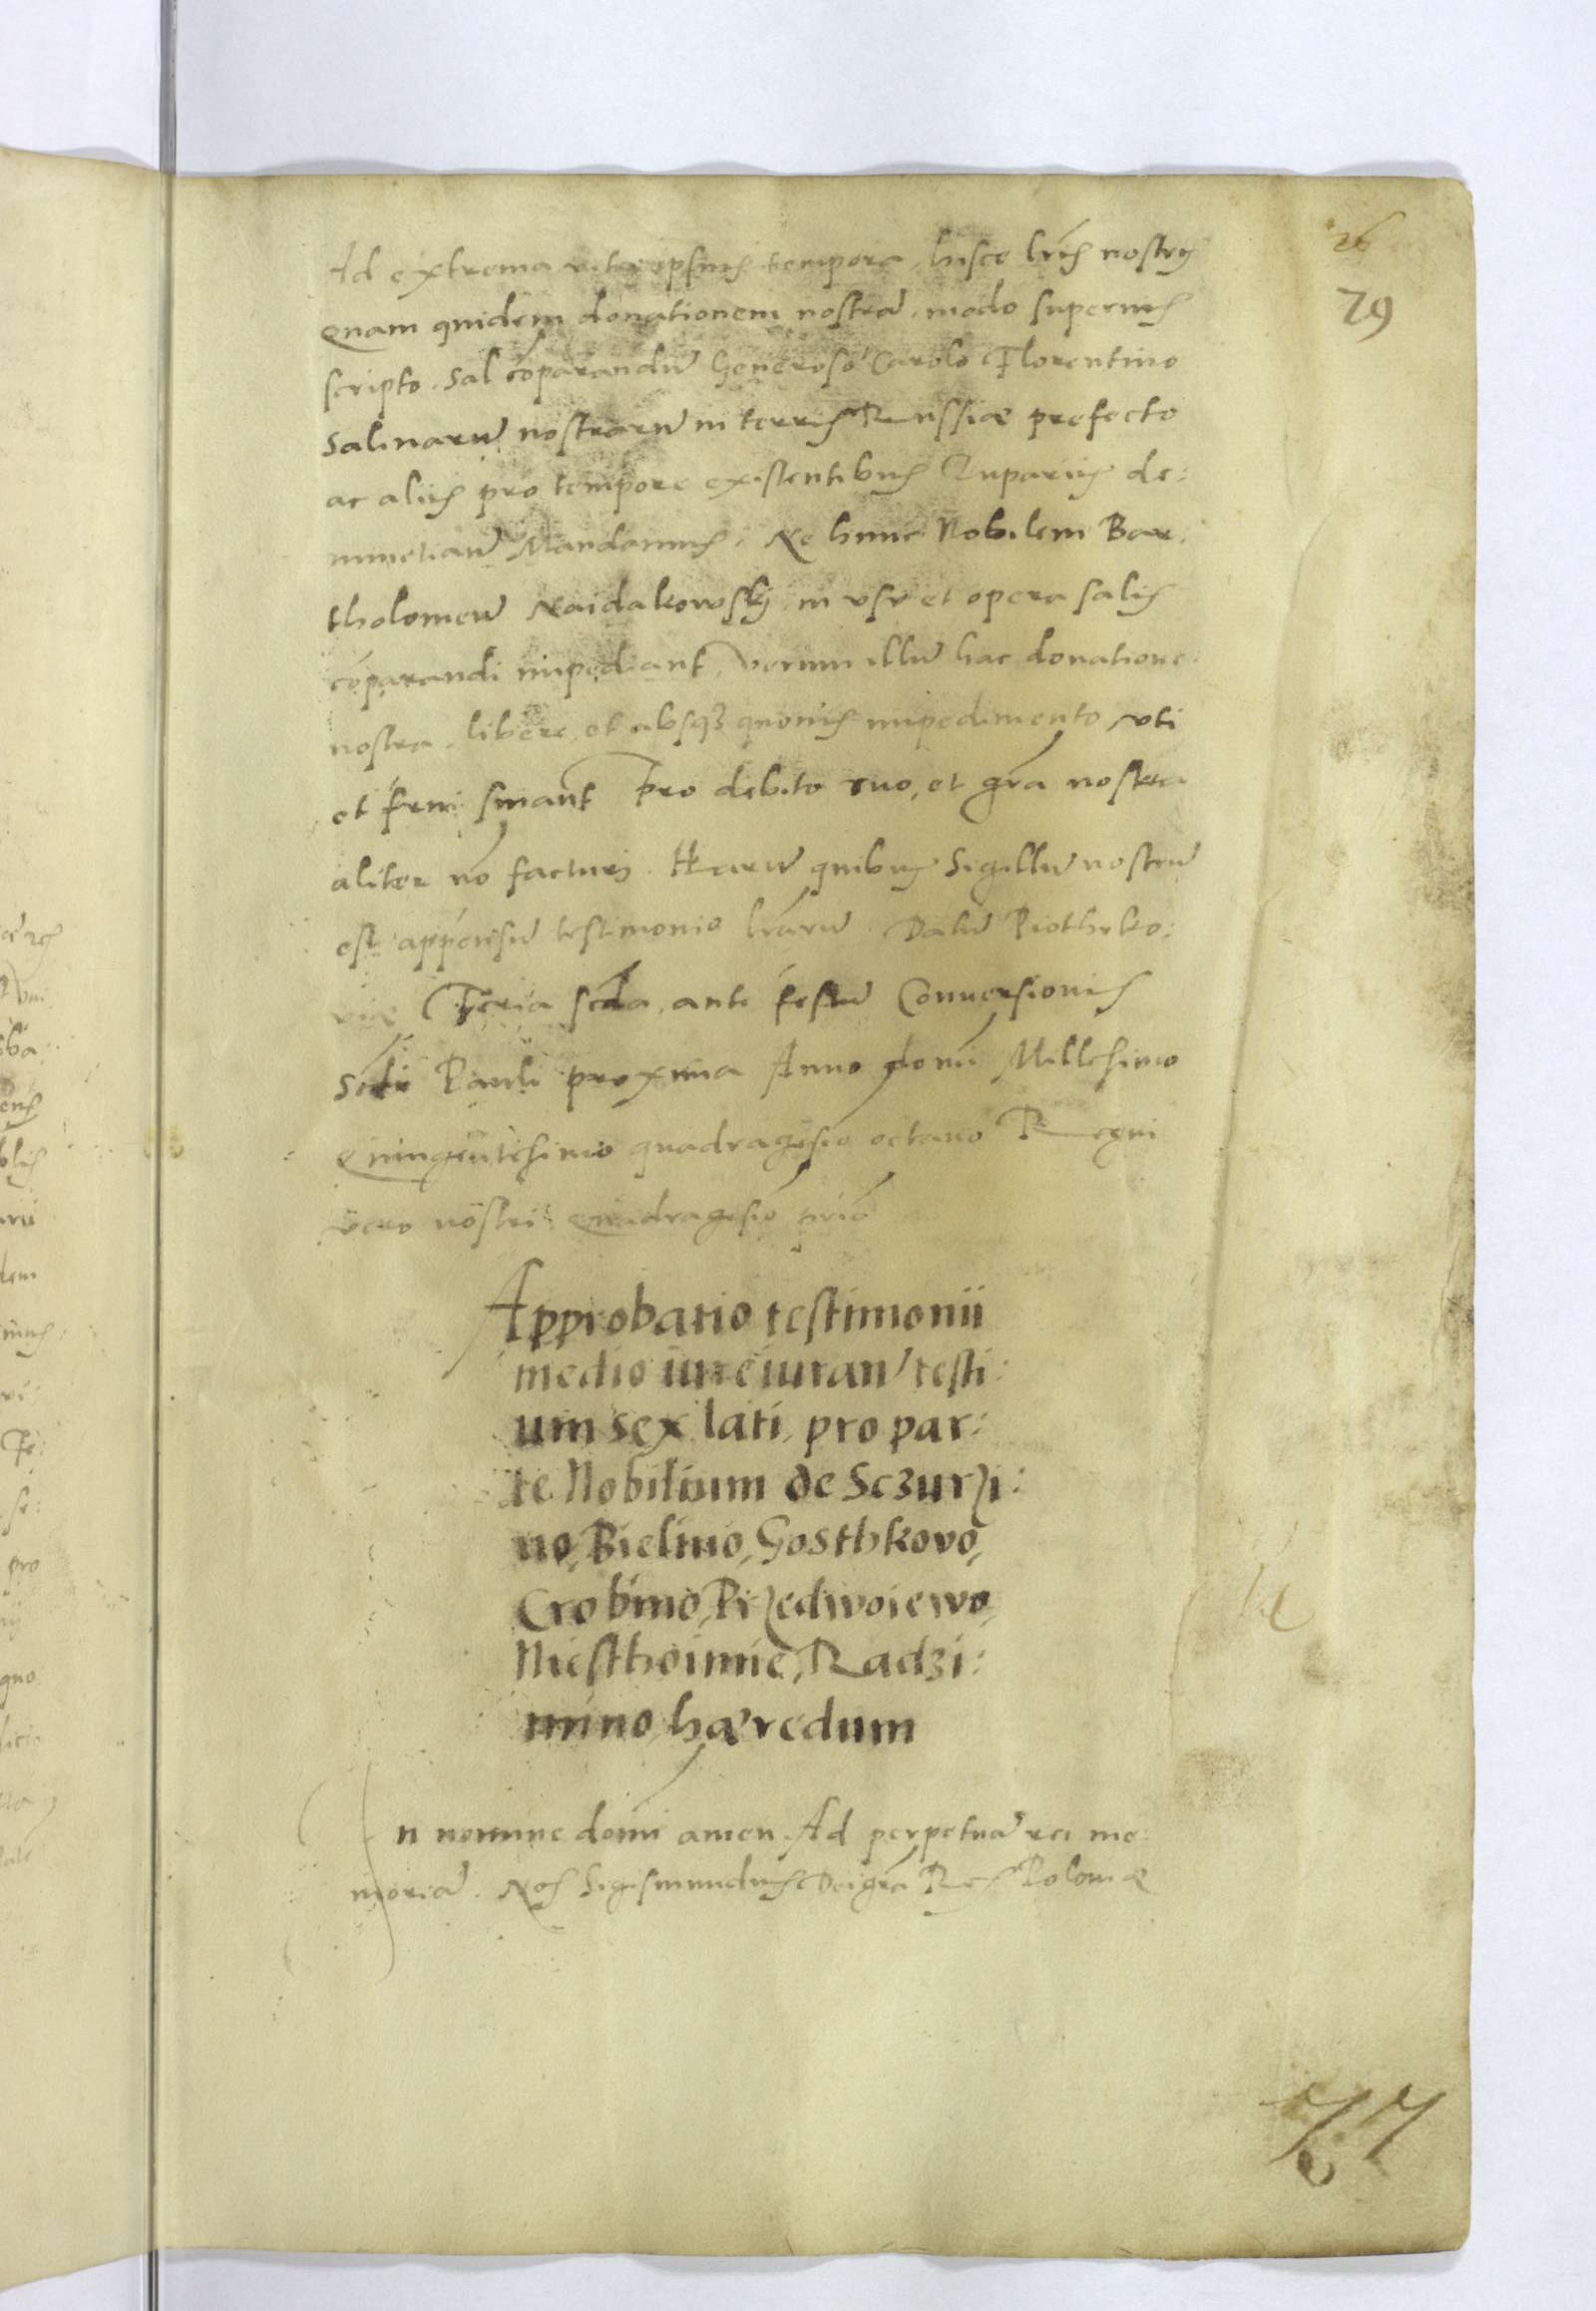 26
79
Ad extrema vitæ ipsius tempora, hisce lr̃is nostris
Quam quidem donationem nostrã, modo superius
scripto, sal cõparandũ Generoso Carolo Florentino
Salinarũ nostrarũ in terris Russiæ prefecto
ac aliis pro tempore existentibus Zupariis de:
nunctiatũ Mandamus, Ne hunc Nobilem Bar:
tholomeũ Naidakowskj, in vsu et opera salis
cõparandi impediant, verum illũ hac donatione
nostra, libere, et absq3 quouis impedimento vti
et frui sinant Pro debito suo, et grã nostra
aliter nõ facturj. Harũ quibus Sigillũ nostrũ
est appensũ testimonio lr̃arũ. Datũ Piothrko:
viæ Feria scda, ante festũ Conuersionis
Scti Pauli proxima Anno domi Millesimo
Quingentesimo quadragesio octauo Regni
vero nostri Quadragesio
Approbatio testimonii
medio iureiuran' testi:
um sex lati, pro par:
te Nobilium de Sczurzi:
no, Bielino, Gosthkovo,
Crobino, Przedwoiewo,
Niesthoimie, Radzi:
mino, hæredum
In nomine domi amen. Ad perpetuã rei me:
moriã. Nos Sigismundus Dei grã Rex Poloniæ
77